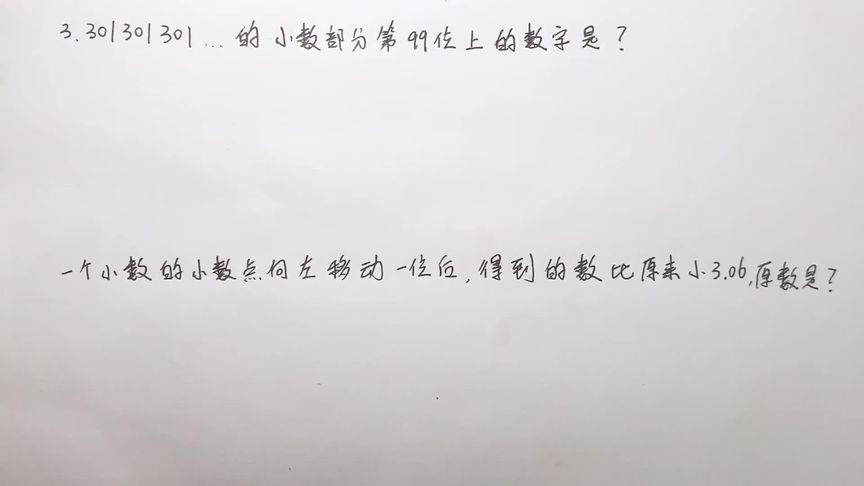 3.301301301...的小数部分第99位上的数字是?
一个小数的小数点向左移动一位后,得到的数比原来小3.06,原数是?